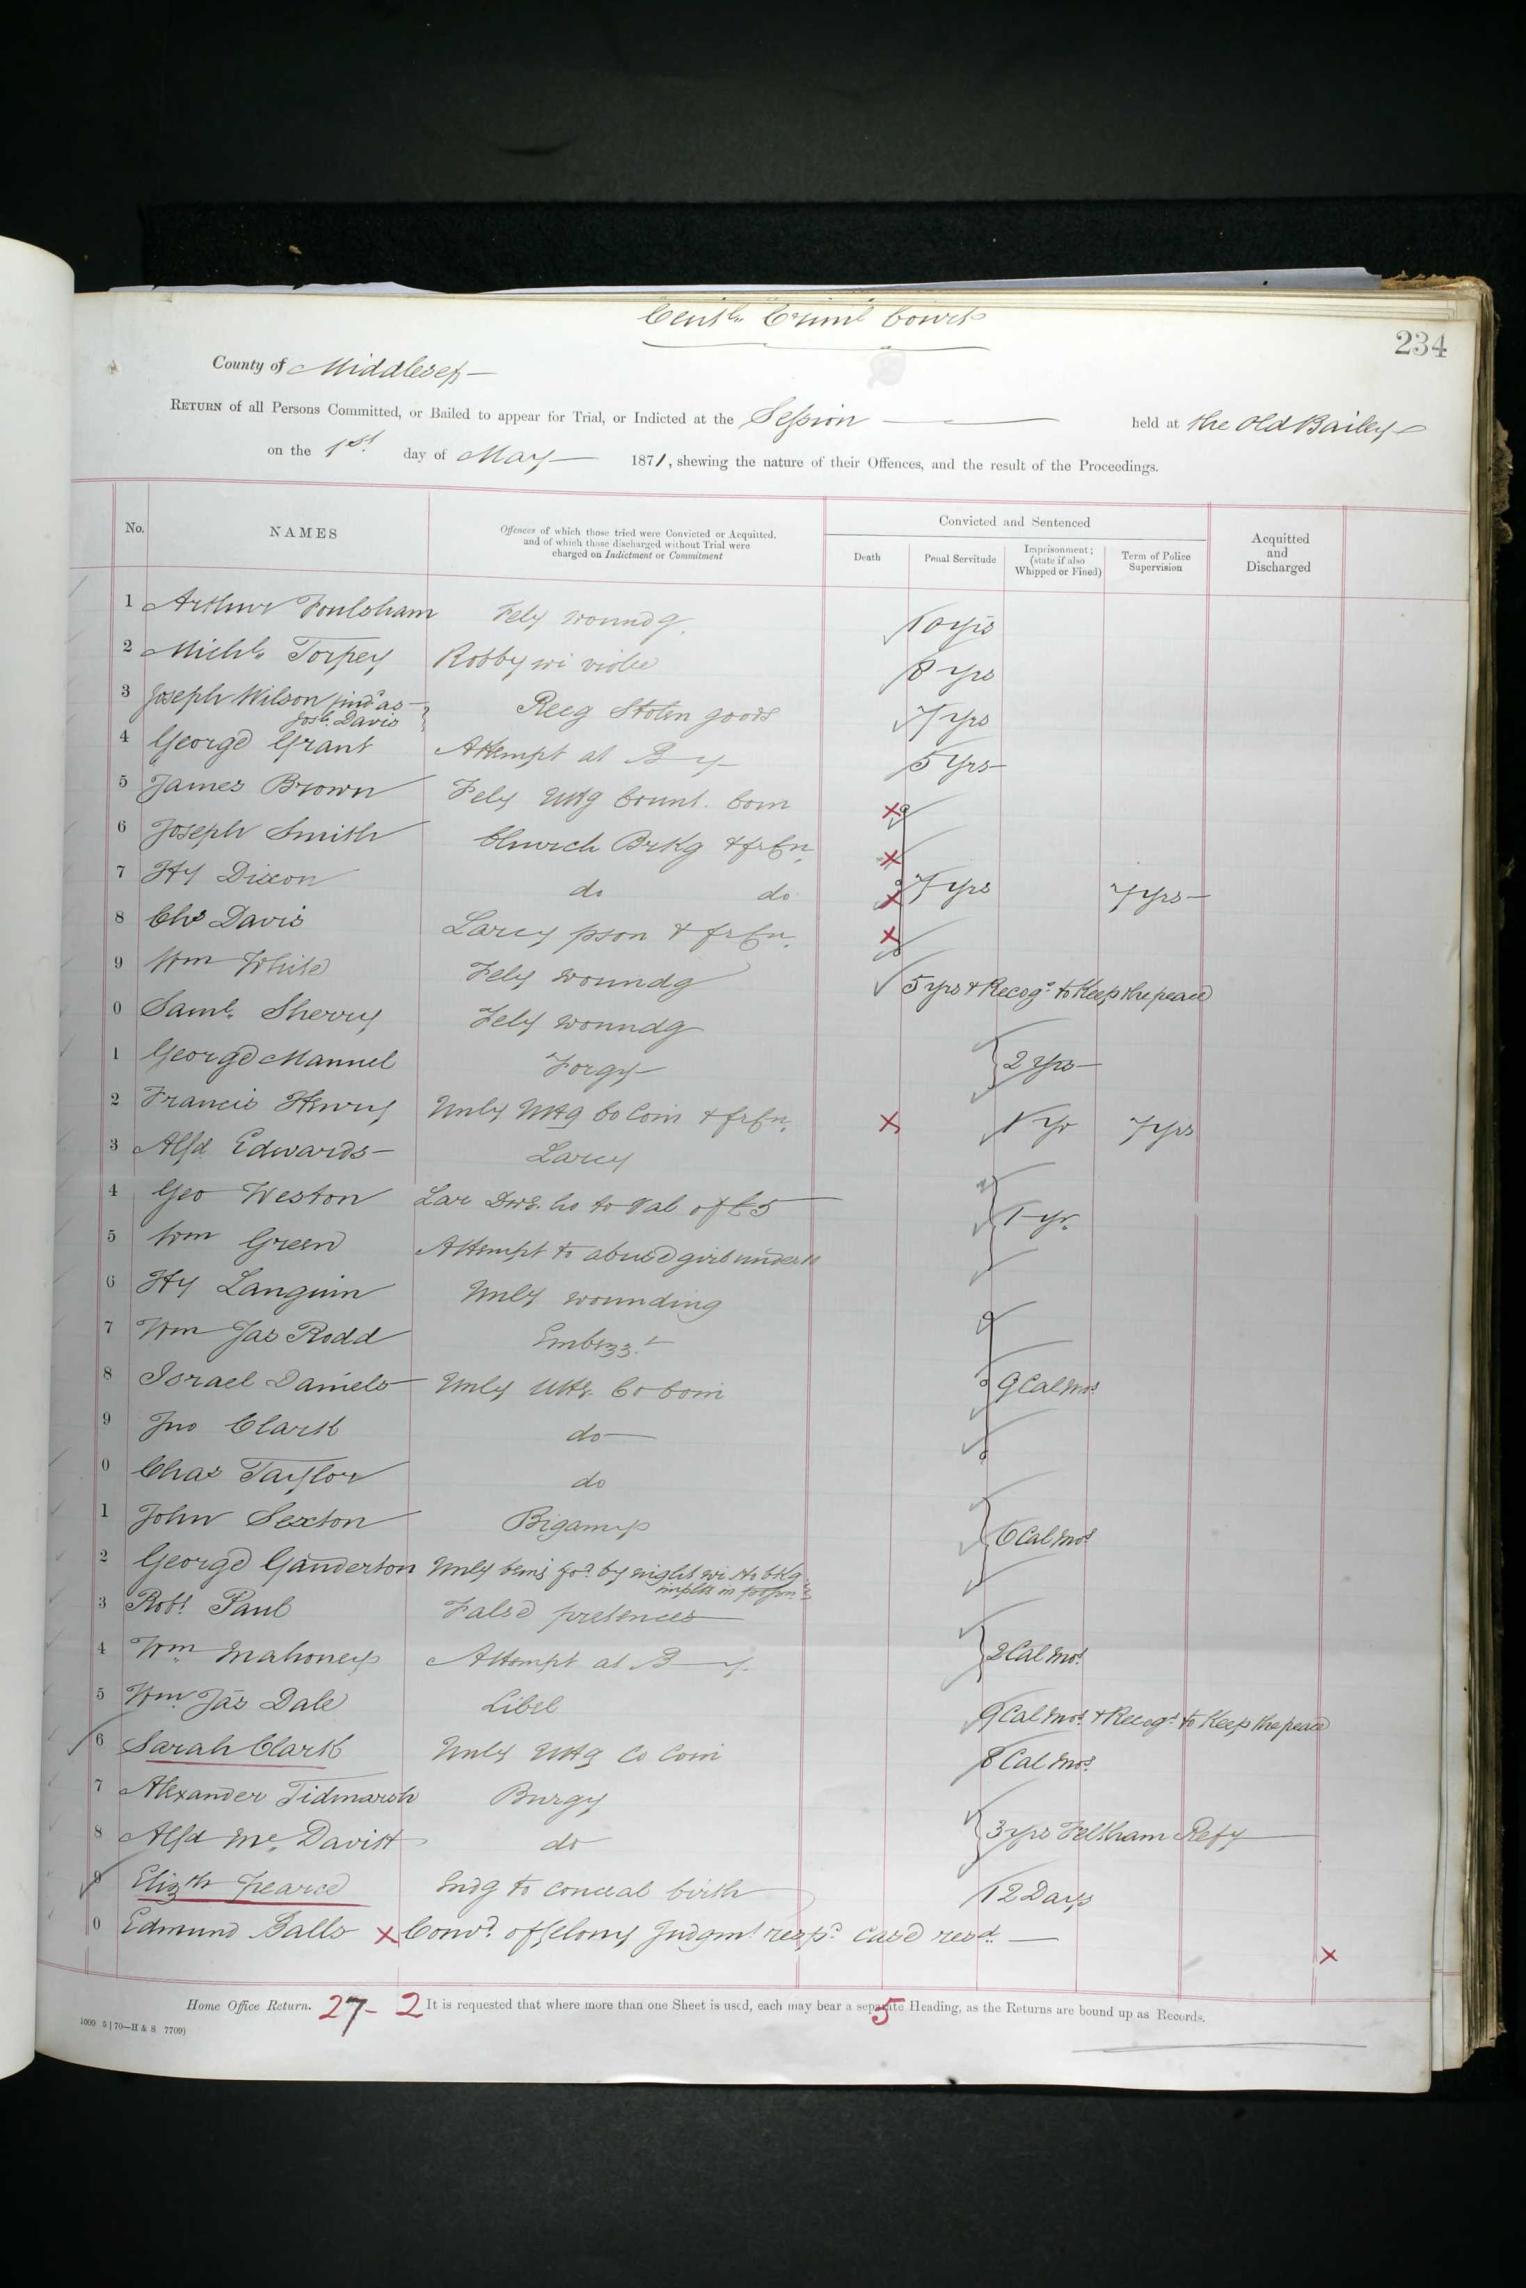 Centl. Criml Court
234
County of Middlesex
RETURN of all Persons Committed, or Bailed to appear for Trial, or Indicted at the Session held at the Old Bailey
on the 1st. day of May 1871, shewing the nature of their Offences, and the result of the Proceedings.
No. NAMES Offences of which those tried were Convicted or Acquitted, and of which those discharged without Trial were charged on Indictment or Commitment Convicted and Sentenced Acquitted and Discharged
Death Penal Servitude Imprisonment; (state if also Whipped or Fined) Term of Police Supervision
1 Arthur Foulsham Fely woundg. 10 yrs
2 Michl. Torpey Robby wi violce 8 yrs
3 Joseph Wilson indd as Recg Stolen goods 7 yrs
Josh. Davis
4 George Grant Attempt at B—y 5 yrs
5 James Brown Fely Uttg Count. Coin
6 Joseph Smith Church Brkg & frCn.
7 Hy Dixon do do 7 yrs 7 yrs
8 Chs Davis Larcy pson & frCn.
9 Wm White Fely woundg 5 yrs & Recogs to Keep the peace
0 Saml. Sherry Fely woundg
1 George Manuel Forgy 2 yrs
2 Francis Henry Unly Uttg Co Coin & frCn. 1 yr 7 yrs
3 Alfd Edwards Larcy
4 Geo Weston Lar Dwg. ho to Val of £5 1 yr.
5 Wm Green Attempt to abuse girl under 10
6 Hy Languin Unly wounding
7 Wm Jas Rodd Embezzt
8 Israel Daniels Unly Uttg. Co Coin 9 Cal Mos
9 Jno Clark do
0 Chas Taylor do
1 John Sexton Bigamy 6 Cal Mos
2 George Ganderton Unly being fod by night wi ho bkg
implts in posson
3 Robt Paul False pretences
4 Wm Mahoney Attempt at B—y. 2 Cal Mos
5 Wm Jas Dale Libel 9 Cal Mos & Recogs to Keep the peace
6 Sarah Clark Unly Uttg Co Coin 8 Cal Mos
7 Alexander Tidmarsh Burgy
8 Alfd Mc. Davitt do 3 yrs Feltham Refy
9 Elizth Pearce Endg to conceal birth 12 Days
0 Edmund Balls Convd of felony Judgmt respd case resd.
Home Office Return. 27 - 2 It is requested that where more than one Sheet is used, each may bear a separate Heading, as the Returns are bound up as Records. 5
1000 5 | 70—H & S 7709)